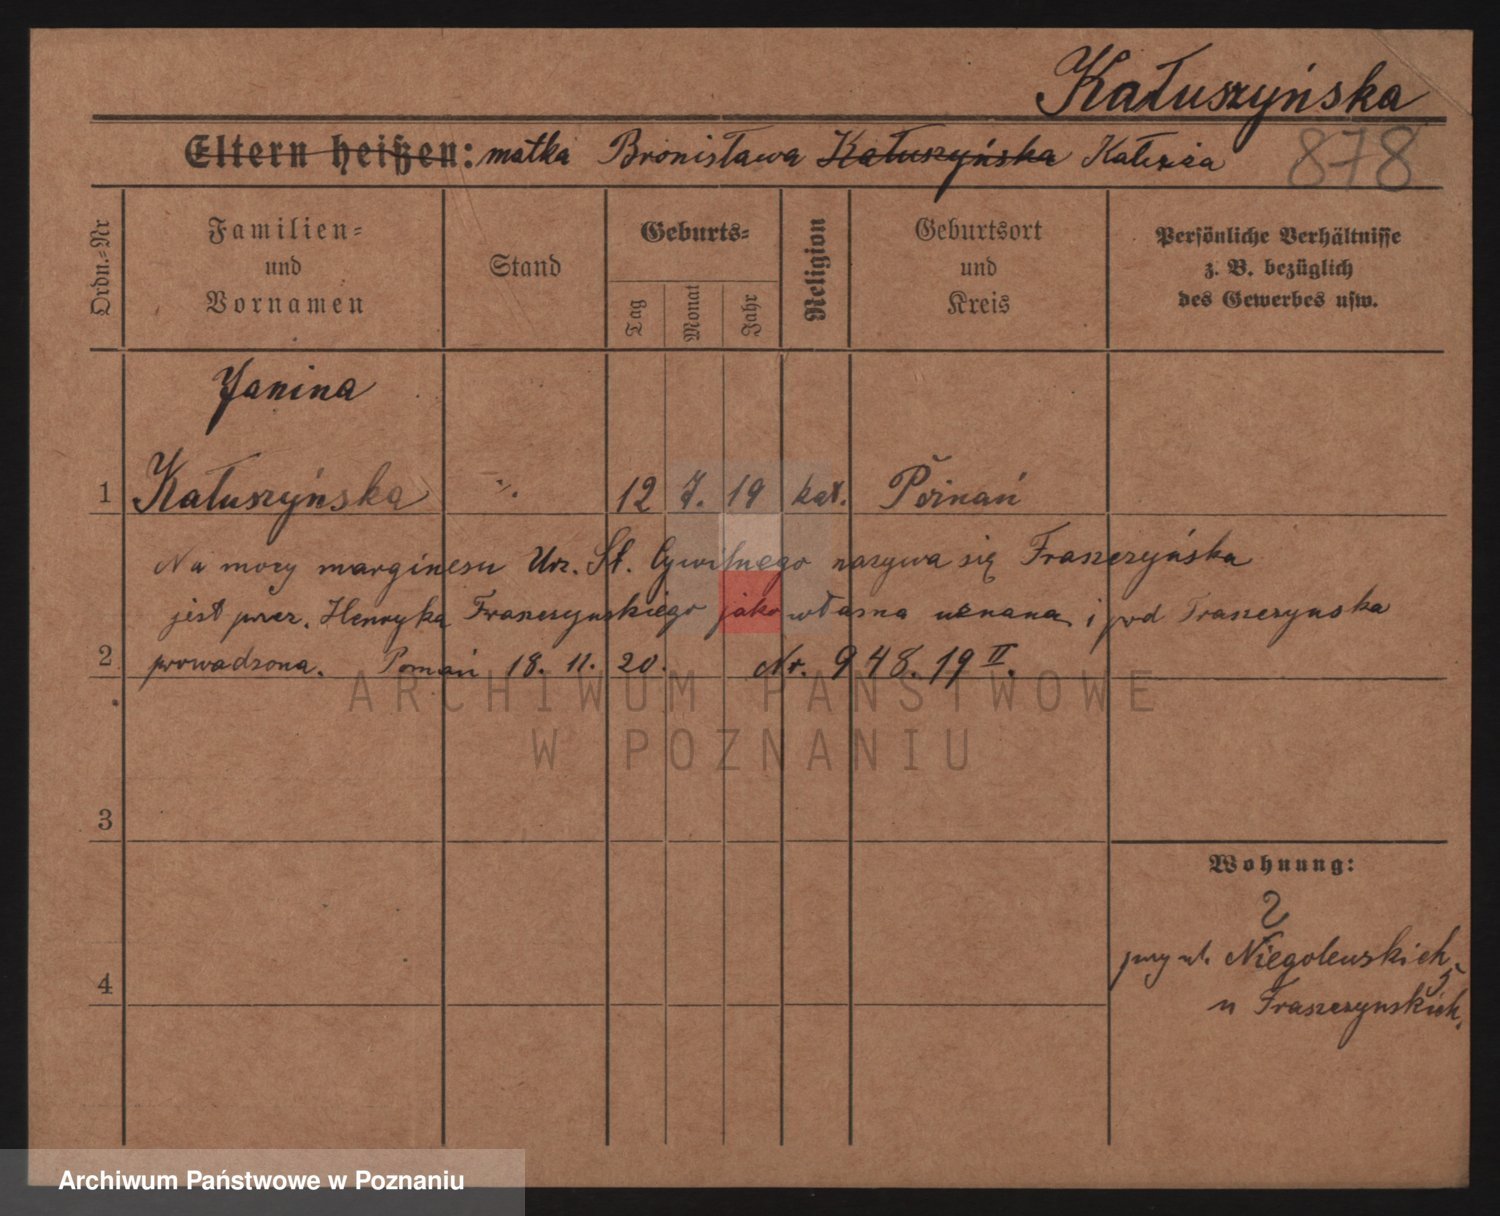 Kałuszyńska
Eltern heißen: matka Bronisława Kałuszyńska
878
Ordn.=Nr
Familien=
und
Vornamen
Stand
Geburts=
Tag
Monat
Jahr
Religion
Geburtsort
und
Kreis
Persönliche Verhältnisse
z. B. bezüglich
des Gewerbes usw.
Janina
1 Kałuszyńska 12 7. 19 kat. Poznań
Na mocy marginesu Urz. St. Cywilnego nazywa się Fraszczyńska
jest przez. Henryka Fraszczynskiego jako własna uznana i pod Fraszczynska
2 prowadzona. Poznań 18. 11. 20. Nr. 948. 19 II.
ARCHIWUM PAŃSTWOWE
W POZNANIU
3
Wohnung:
przy ul. Niegolewskich
4
u Fraszczynskich.
Archiwum Państwowe w Poznaniu